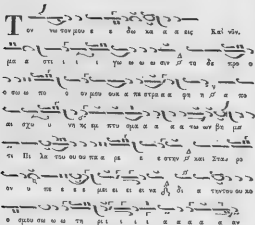 Τὸν νω τον μου ε ε δω κα α α εις Καὶ νῦν.
μα α στι ι ι γω ω ω ω σιν το δε προ ο
ο σω ω πο ο ον μου ουκ α πε στρα α φη η α πο
αι σχυ υ νης εμ πτυ σμα α α α α τω ων βη μα
τι Πι λα του ου ου πα α ρε ε ε στην και Σταυ ρο
ον υ πε ε ε μει ει ει να δι α την του ου κο
ο σμου σω ω ω τη ρι ι ι ι ι α α α α α αν